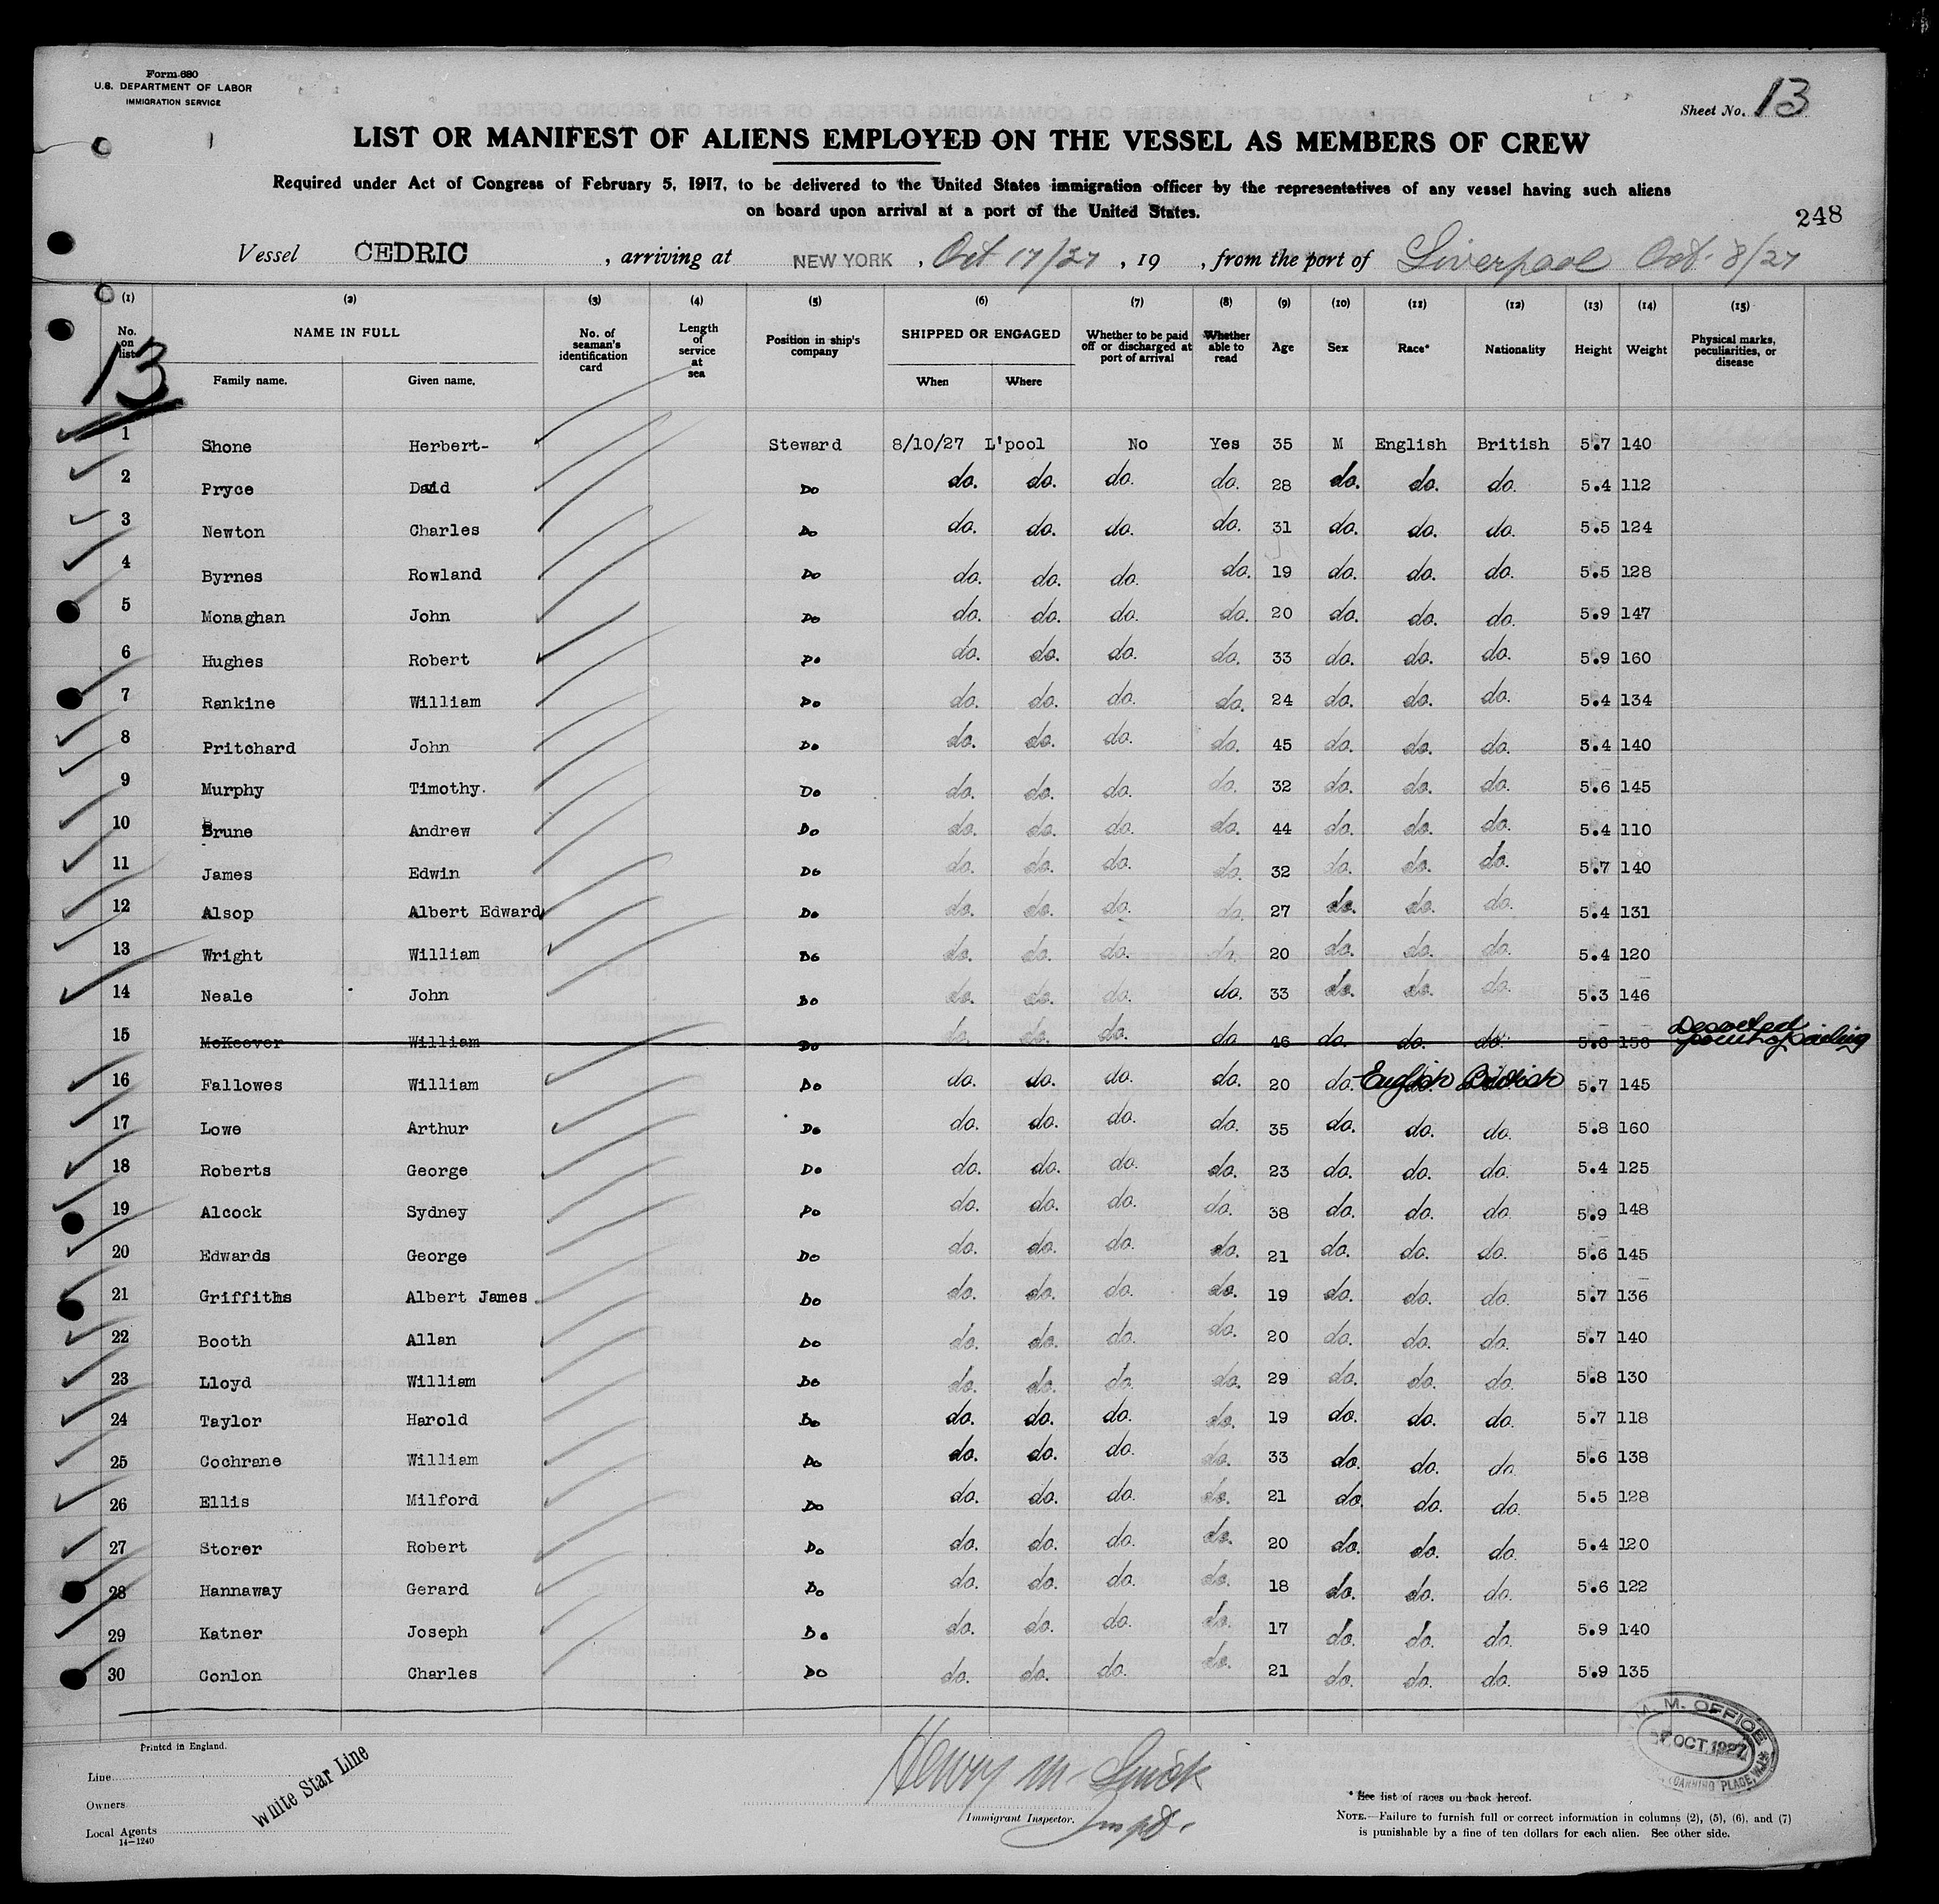 Form 680
U.S. DEPARTMENT OF LABOR
IMMIGRATION SERVICE
Sheet No. 13
LIST OR MANIFEST OF ALIENS EMPLOYED ON THE VESSEL AS MEMBERS OF CREW
Required under Act of Congress of February 5, 1917, to be delivered to the United States immigration officer by the representatives of any vessel having such aliens
on board upon arrival at a port of the United States.
248
Vessel CEDRIC, arriving at NEW YORK, Oct 17/27, 19 , from the port of Liverpool Oct. 8/27
(1) (2) (3) (4) (5) (6) (7) (8) (9) (10) (11) (12) (13) (14) (15)
No. on list NAME IN FULL Family name. Given name. No. of seaman's identification card Length of service at sea Position in ship's company SHIPPED OR ENGAGED When Where Whether to be paid off or discharged at port of arrival Whether able to read Age Sex Race* Nationality Height Weight Physical marks, peculiarities, or disease
13
1 Shone Herbert- Steward 8/10/27 L'pool No Yes 35 M English British 5.7 140
2 Pryce David Do do. do. do. do. 28 do. do. do. 5.4 112
3 Newton Charles Do do. do. do. do. 31 do. do. do. 5.5 124
4 Byrnes Rowland Do do. do. do. do. 19 do. do. do. 5.5 128
5 Monaghan John Do do. do. do. do. 20 do. do. do. 5.9 147
6 Hughes Robert Do do. do. do. do. 33 do. do. do. 5.9 160
7 Rankine William Do do. do. do. do. 24 do. do. do. 5.4 134
8 Pritchard John Do do. do. do. do. 45 do. do. do. 5.4 140
9 Murphy Timothy. Do do. do. do. do. 32 do. do. do. 5.6 145
10 Brune Andrew Do do. do. do. do. 44 do. do. do. 5.4 110
11 James Edwin Do do. do. do. do. 32 do. do. do. 5.7 140
12 Alsop Albert Edward Do do. do. do. do. 27 do. do. do. 5.4 131
13 Wright William Do do. do. do. do. 20 do. do. do. 5.4 120
14 Neale John Do do. do. do. do. 33 do. do. do. 5.3 146
15 McKeever William Do do. do. do. do 46 do. do. do. 5.8 158 Deserted point of sailing
16 Fallowes William Do do. do. do. do. 20 do. English British 5.7 145
17 Lowe Arthur Do do. do. do. do. 35 do. do. do. 5.8 160
18 Roberts George Do do. do. do. do. 23 do. do. do. 5.4 125
19 Alcock Sydney Do do. do. do. do. 38 do. do. do. 5.9 148
20 Edwards George Do do. do. do. do. 21 do. do. do. 5.6 145
21 Griffiths Albert James Do do. do. do. do. 19 do. do. do. 5.7 136
22 Booth Allan Do do. do. do. do. 20 do. do. do. 5.7 140
23 Lloyd William Do do. do. do. do. 29 do. do. do. 5.8 130
24 Taylor Harold Do do. do. do. do. 19 do. do. do. 5.7 118
25 Cochrane William Do do. do. do. do. 33 do. do. do. 5.6 138
26 Ellis Milford Do do. do. do. do. 21 do. do. do. 5.5 128
27 Storer Robert Do do. do. do. do. 20 do. do. do. 5.4 120
28 Hannaway Gerard Do do. do. do. do. 18 do. do. do. 5.6 122
29 Katner Joseph Do do. do. do. do. 17 do. do. do. 5.9 140
30 Conlon Charles Do do. do. do. do. 21 do. do. do. 5.9 135
M. M. OFFICE
OCT 1927
CANNING PLACE
Printed in England.
Line
Owners
Local Agents
14-1240
White Star Line
Henry M.
Immigrant Inspector.
* See list of races on back hereof.
NOTE.—Failure to furnish full or correct information in columns (2), (5), (6), and (7)
is punishable by a fine of ten dollars for each alien. See other side.